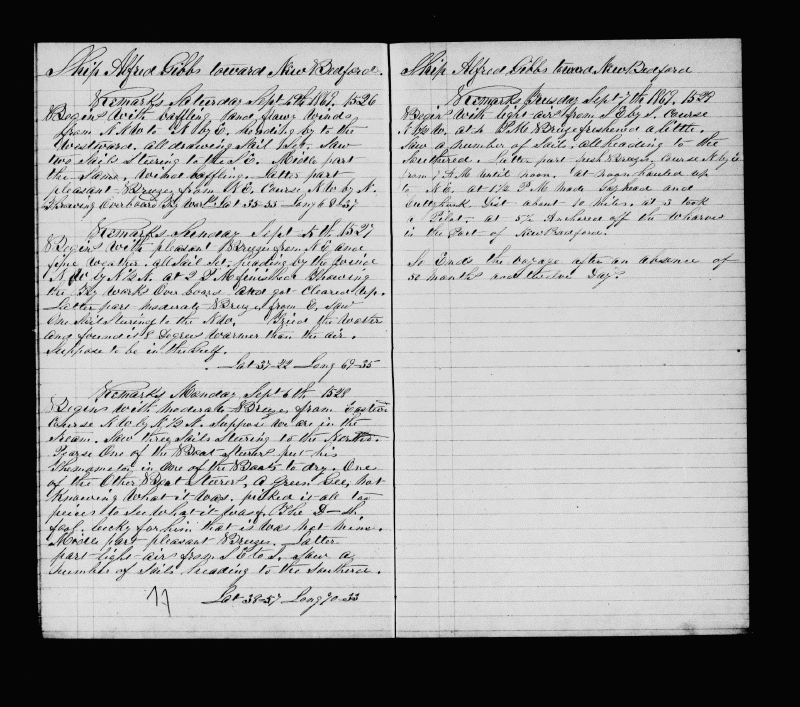 Ship Alfred Gibbs toward New Bedford.
Remarks Saturday Sept 4th 1869. 1526
Begins with baffling and flawy winds
from NNW to N by E. heading by to the
Westward. all drawing Sail Set. Saw
two Sails Steering to the S.E. Midle part
the Same, wind baffling. Latter part
pleasant Breezes from N.E. Course NW by N.
Throwing Overboard Try works Lat 35-55 Long 68-37
Remarks Sunday Sept 5th 1527
Begins with pleasant Breezes from N.E. and
fine weather. all Sail Set. heading by the wind
NW by N ½ N. at 2 P.M. finished Throwing
the Try Works Over board and got Cleared up.
Latter part moderate Breezes from E. Saw
One Sail Steering to the NW. Tried the Water
and found it 8 Degrees warmer than the air.
Suppose to be in the Gulf.
Lat 37-22 Long 69-35
Remarks Monday Sept 6th 1528
Begins with moderate Breezes from Eastern
Course NW by N ½ N. Suppose we are in the
Stream. Saw three Sails Steering to the North.
One of the Boat Steerer put his
in One of the Boats to dry. One
of the Other Boat Steerer, a green Gee, not
Knowing what it was. picked it all too
peices to See what it was. The D-- sh
fool. lucky for him that it was not mine.
Midle part pleasant Breezes. Latter
part light airs from S.E. to S. Saw a
number of Sails heading to the Southerd.
Lat 38-57 Long 70-33
Ship Alfred Gibbs toward New Bedford
Remarks Tuesday Sept 7th 1869. 1529
Begins with light airs from SE by S. Course
N by W. at 4 P.M. Breeze freshened a little.
Saw a number of Sail, all heading to the
Southerd. Latter part fresh Breezes, Course N by E
from 7 A.M. until noon. at noon hauled up
to N.E. at 1½ P.M. made Gayhead and
Cuttyhunk. Dist about 10 miles. at 3 took
a Pilot. at 5½ Anchored off the Wharves
in the Port of New Bedford.
So Ends the voyage after an absence of
50 months and twelve Days.